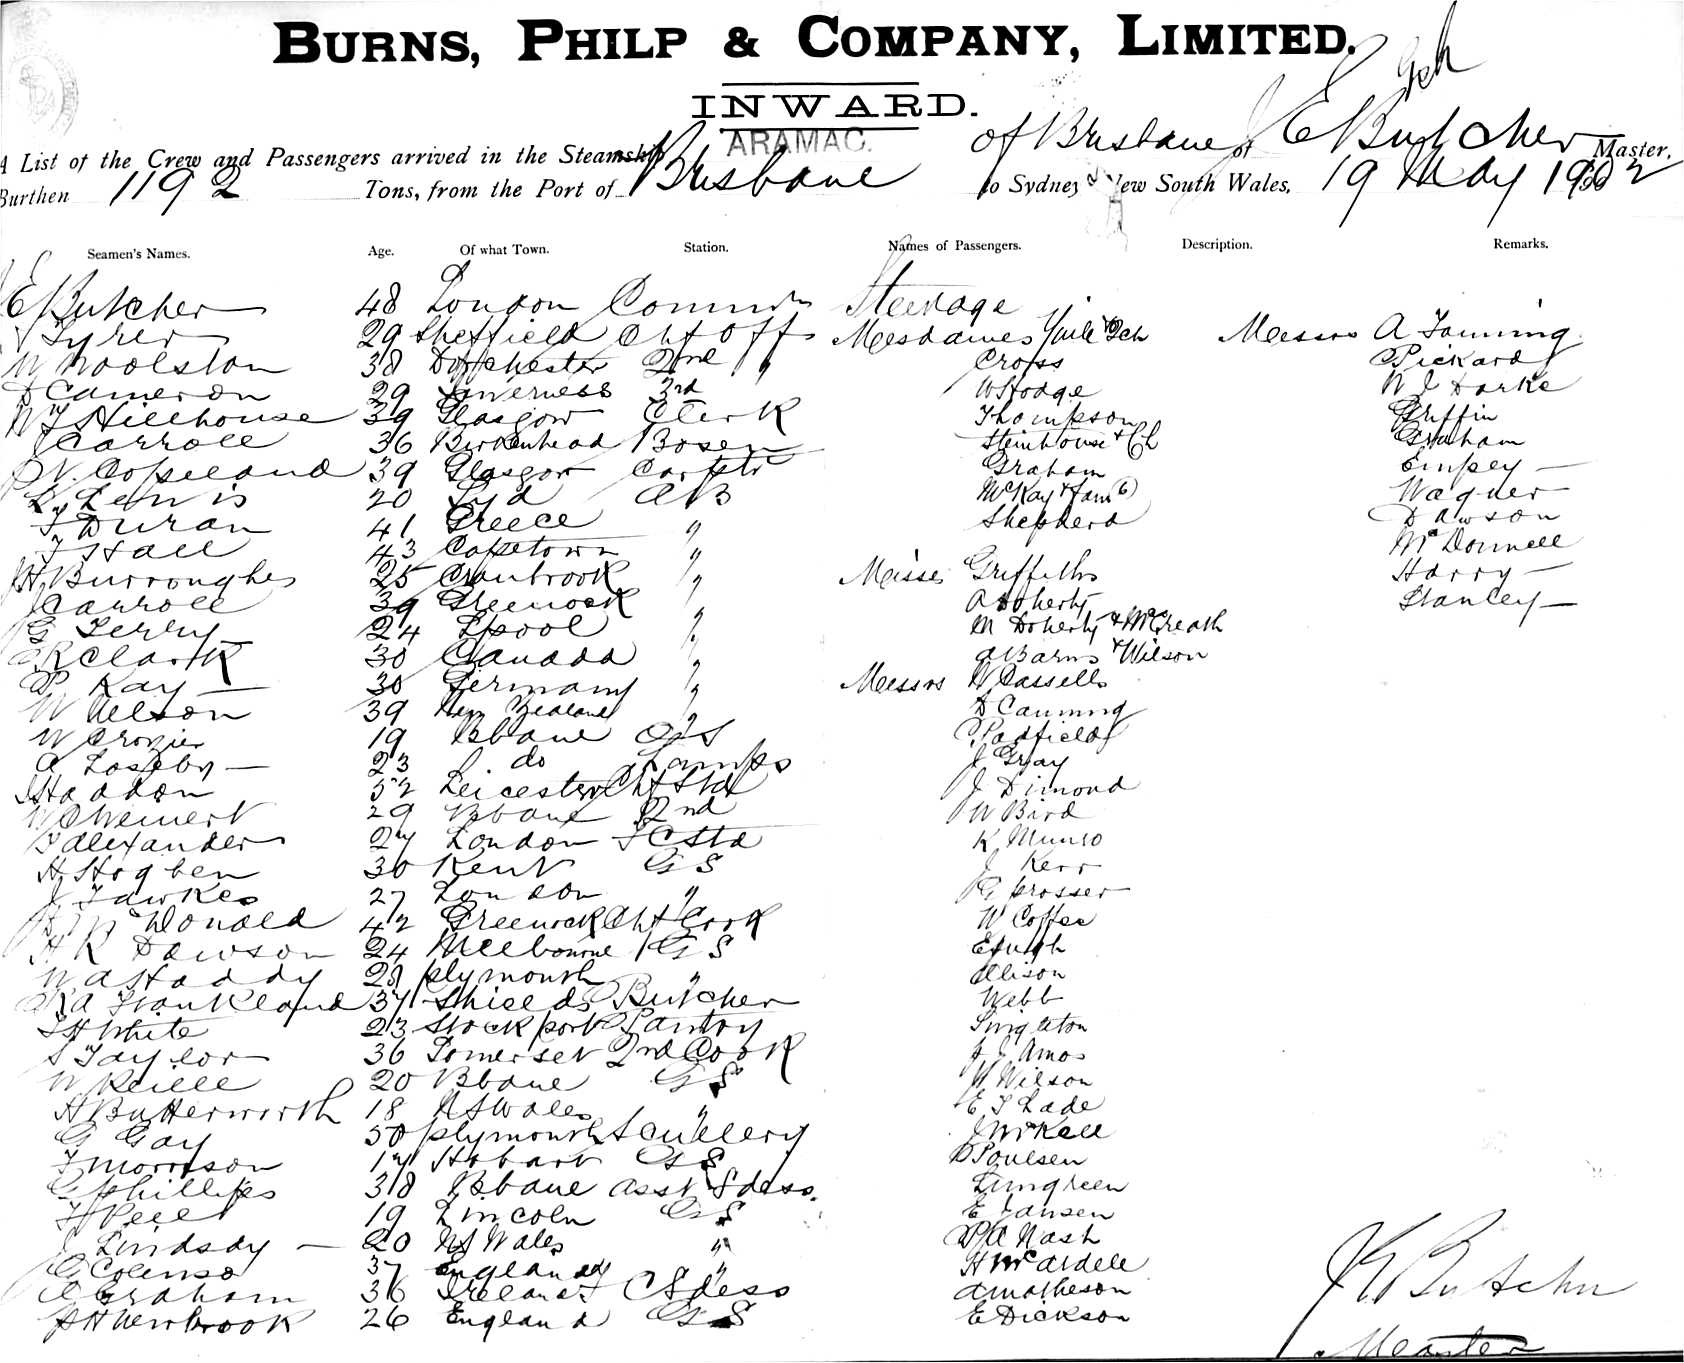 BURNS, PHILP & COMPANY, LIMITED.
INWARD.
ARAMAC.
A List of the Crew and Passengers arrived in the Steamship of Brisbane of J E Butcher Master,
Burthen 1192 Tons, from the Port of Brisbane to Sydney New South Wales, 19 May 1902
Seamen's Names. Age. Of what Town. Station. Names of Passengers. Description. Remarks.
E Butcher 48 London Steerage
Tyrer 29 Sheffield Chf Off Mesdames Yuile & Ch Messrs A Fanning
W Woolston 38 Dorchester 2nd " Cross Pickard
D Cameron 29 Inverness 3rd W Hodge W J Darke
W J Hillhouse 39 Glasgow Clerk Thompson Griffin
J Carroll 36 Birkenhead Bosen Steinhouse & Ch Graham
W. Copeland 39 Glasgow Carptr Graham Empey
L Lewis 20 Syd AB McKay & fam (6) Wagner
T Duran 41 Greece " Shepherd Dawson
T Hall 43 Capetown " McDonnell
H Burroughes 25 Cranbrook " Misses Griffiths Harry
J Carroll 39 Greenock " A Doherty Stanley
G Terley 24 Lpool " M Doherty & McGreath
R Clark 30 Canada " A Barns & Wilson
P Kay 30 Germany " Messrs W Cassells
W Nelson 39 New Zealand " D Canning
W Crozier 19 Bbane OS C Padfield
A Loseby 23 do Lamps J Gray
J Haddon 52 Leicester Chf Std J Dimond
29 Bbane 2nd W Bird
Alexander 27 London FC Std K Munro
H Hogben 30 Kent GS J Kerr
J Fawkes 27 London " G Prosser
McDonald 42 Greenock Chf Cook W Coffee
H R Dawson 24 Melbourne GS E Pugh
W A Haddy 28 Plymouth " Allison
R A Frankland 37 Shields Butcher Webb
T H White 23 Stockport Pantry Singleton
S Taylor 36 Somerset 2nd Cook J J Amos
W Reille 20 Bbane GS W Wilson
H Butterworth 18 NS Wales " E T Lade
G Gay 50 Plymouth Scullery J McKell
T Morrison 17 Hobart GS P Poulsen
G Phillips 38 Bbane asst Sdess. Lungreen
T Peile 19 Lincoln GS E Jansen
J Lindsay 20 NS Wales " A Nash
G Colenso 37 England " H McArdell
C Graham 36 Ireland CSdess A Matheson
H Newbrook 26 England GS E Dickson
J E Butcher
Master